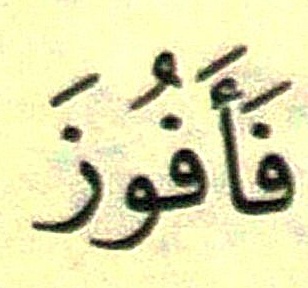 فَأَفُوزَ